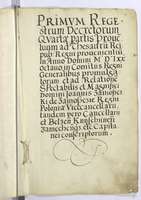 PRIMVM REGE
strum Decretorum
Quartæ Partis Proue
tuum ad Thesauru Rei
pub: Regni prouenientiu
in Anno Domini M D LXX
octauo in Comitiis Regni
Generalibus promulga
torum et ad Relatione
Spectabilis et Magnifici
Domini Joannis Zamoysci
Regni
Poloniæ Vicecancellarii
tandem pero Cancellarii
et Belzen Knischinen
Zamechens: etc Capita
nei conscriptorum